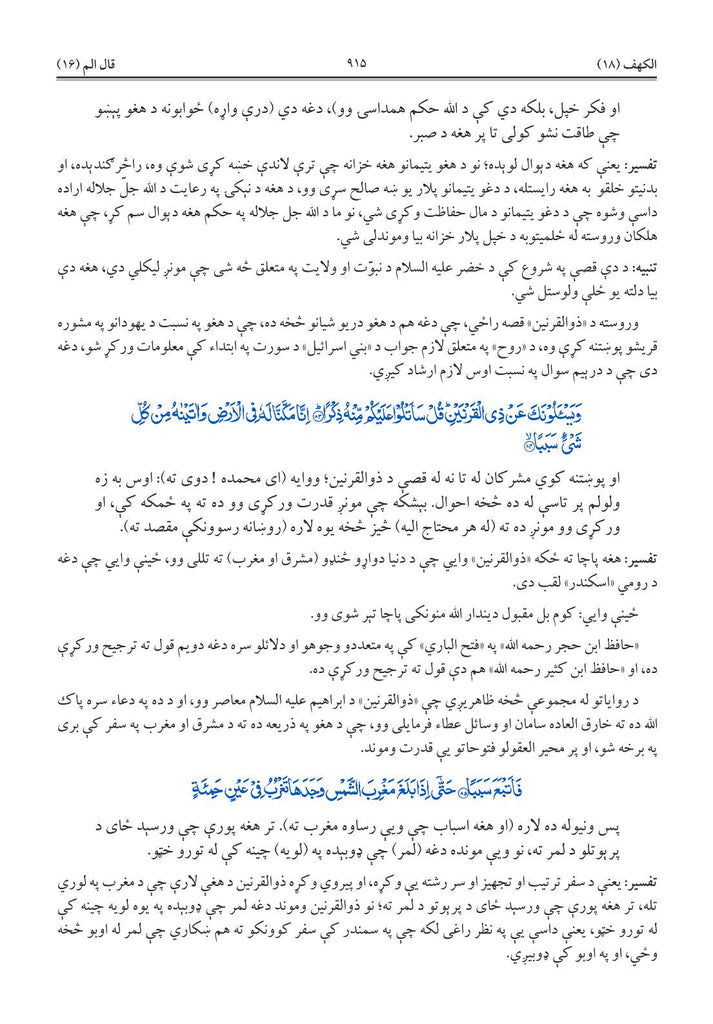 الکهف (۱۸) ۹۱۵ قال الم (۱۶)
او فکر خپل، بلکه دي کې د الله حکم همداسی وو)، دغه دي (درې واړه) ځوابونه د هغو پېښو
چې طاقت نشو کولی تا پر هغه د صبر.
تفسیر: یعنې که هغه دېوال لوېده؛ نو د هغو یتیمانو هغه خزانه چې ترې لاندې خښه کړی شوې وه، راڅرګندېده، او
بدنیتو خلقو به هغه رایستله، د دغو یتیمانو پلار یو ښه صالح سړی وو، د هغه د نېکۍ په رعایت د الله جلّ جلاله اراده
داسې وشوه چې د دغو یتیمانو د مال حفاظت وکړی شي، نو ما د الله جل جلاله په حکم هغه دېوال سم کړ، چې هغه
هلکان وروسته له ځلمیتوبه د خپل پلار خزانه بیا وموندلی شي.
تنبیه: د دې قصې په شروع کې د خضر علیه السلام د نبوّت او ولایت په متعلق څه شی چې مونږ لیکلي دي، هغه دې
بیا دلته یو ځلې ولوستل شي.
وروسته د «ذوالقرنین» قصه راځي، چې دغه هم د هغو دریو شیانو څخه ده، چې د هغو په نسبت د یهودانو په مشوره
قریشو پوښتنه کړې وه، د «روح» په متعلق لازم جواب د «بني اسرائیل» د سورت په ابتداء کې معلومات ورکړ شو، دغه
دی چې د درېیم سوال په نسبت اوس لازم ارشاد کیږي.
وَيَسْـَٔلُوْنَكَ عَنْ ذِى الْقَرْنَيْنِ ؕ قُلْ سَاَتْلُوْا عَلَيْكُمْ مِّنْهُ ذِكْرًا ؕ۸۳ اِنَّا مَكَّنَّا لَهٗ فِى الْاَرْضِ وَاٰتَيْنٰهُ مِنْ كُلِّ
شَىْءٍ سَبَبًا ۙ۸۴
او پوښتنه کوي مشرکان له تا نه له قصې د ذوالقرنین؛ ووایه (ای محمده ! دوی ته): اوس به زه
ولولم پر تاسې له ده څخه احوال. بېشکه چې مونږ قدرت ورکړی وو ده ته په ځمکه کې، او
ورکړی وو مونږ ده ته (له هر محتاج الیه) څیز څخه یوه لاره (روښانه رسوونکې مقصد ته).
تفسیر: هغه پاچا ته ځکه «ذوالقرنین» وایي چې د دنیا دواړو څنډو (مشرق او مغرب) ته تللی وو، ځینې وایي چې دغه
د رومي «اسکندر» لقب دی.
ځینې وایي: کوم بل مقبول دیندار الله منونکی پاچا تېر شوی وو.
«حافظ ابن حجر رحمه الله» په «فتح الباري» کې په متعددو وجوهو او دلائلو سره دغه دویم قول ته ترجیح ورکړې
ده، او «حافظ ابن کثیر رحمه الله» هم دې قول ته ترجیح ورکړې ده.
د روایاتو له مجموعې څخه ظاهریږي چې «ذوالقرنین» د ابراهیم علیه السلام معاصر وو، او د ده په دعاء سره پاک
الله ده ته خارق العاده سامان او وسائل عطاء فرمایلی وو، چې د هغو په ذریعه ده ته د مشرق او مغرب په سفر کې بری
په برخه شو، او پر محیر العقولو فتوحاتو یې قدرت وموند.
فَاَتْبَعَ سَبَبًا ۸۵ حَتّٰٓى اِذَا بَلَغَ مَغْرِبَ الشَّمْسِ وَجَدَهَا تَغْرُبُ فِىْ عَيْنٍ حَمِئَةٍ
پس ونیوله ده لاره (او هغه اسباب چې ویې رساوه مغرب ته). تر هغه پورې چې ورسېد ځای د
پرېوتلو د لمر ته، نو ویې مونده دغه (لمر) چې ډوبېده په (لویه) چینه کې له تورو خټو.
تفسیر: یعنې د سفر ترتیب او تجهیز او سر رشته یې وکړه، او پیروي وکړه ذوالقرنین د هغې لارې چې د مغرب په لورې
تله، تر هغه پورې چې ورسېد ځای د پرېوتو د لمر ته؛ نو ذوالقرنین وموند دغه لمر چې ډوبېده په یوه لویه چینه کې
له تورو خټو، یعنې داسې یې په نظر راغی لکه چې په سمندر کې سفر کوونکو ته هم ښکاري چې لمر له اوبو څخه
وځي، او په اوبو کې ډوبیږي.